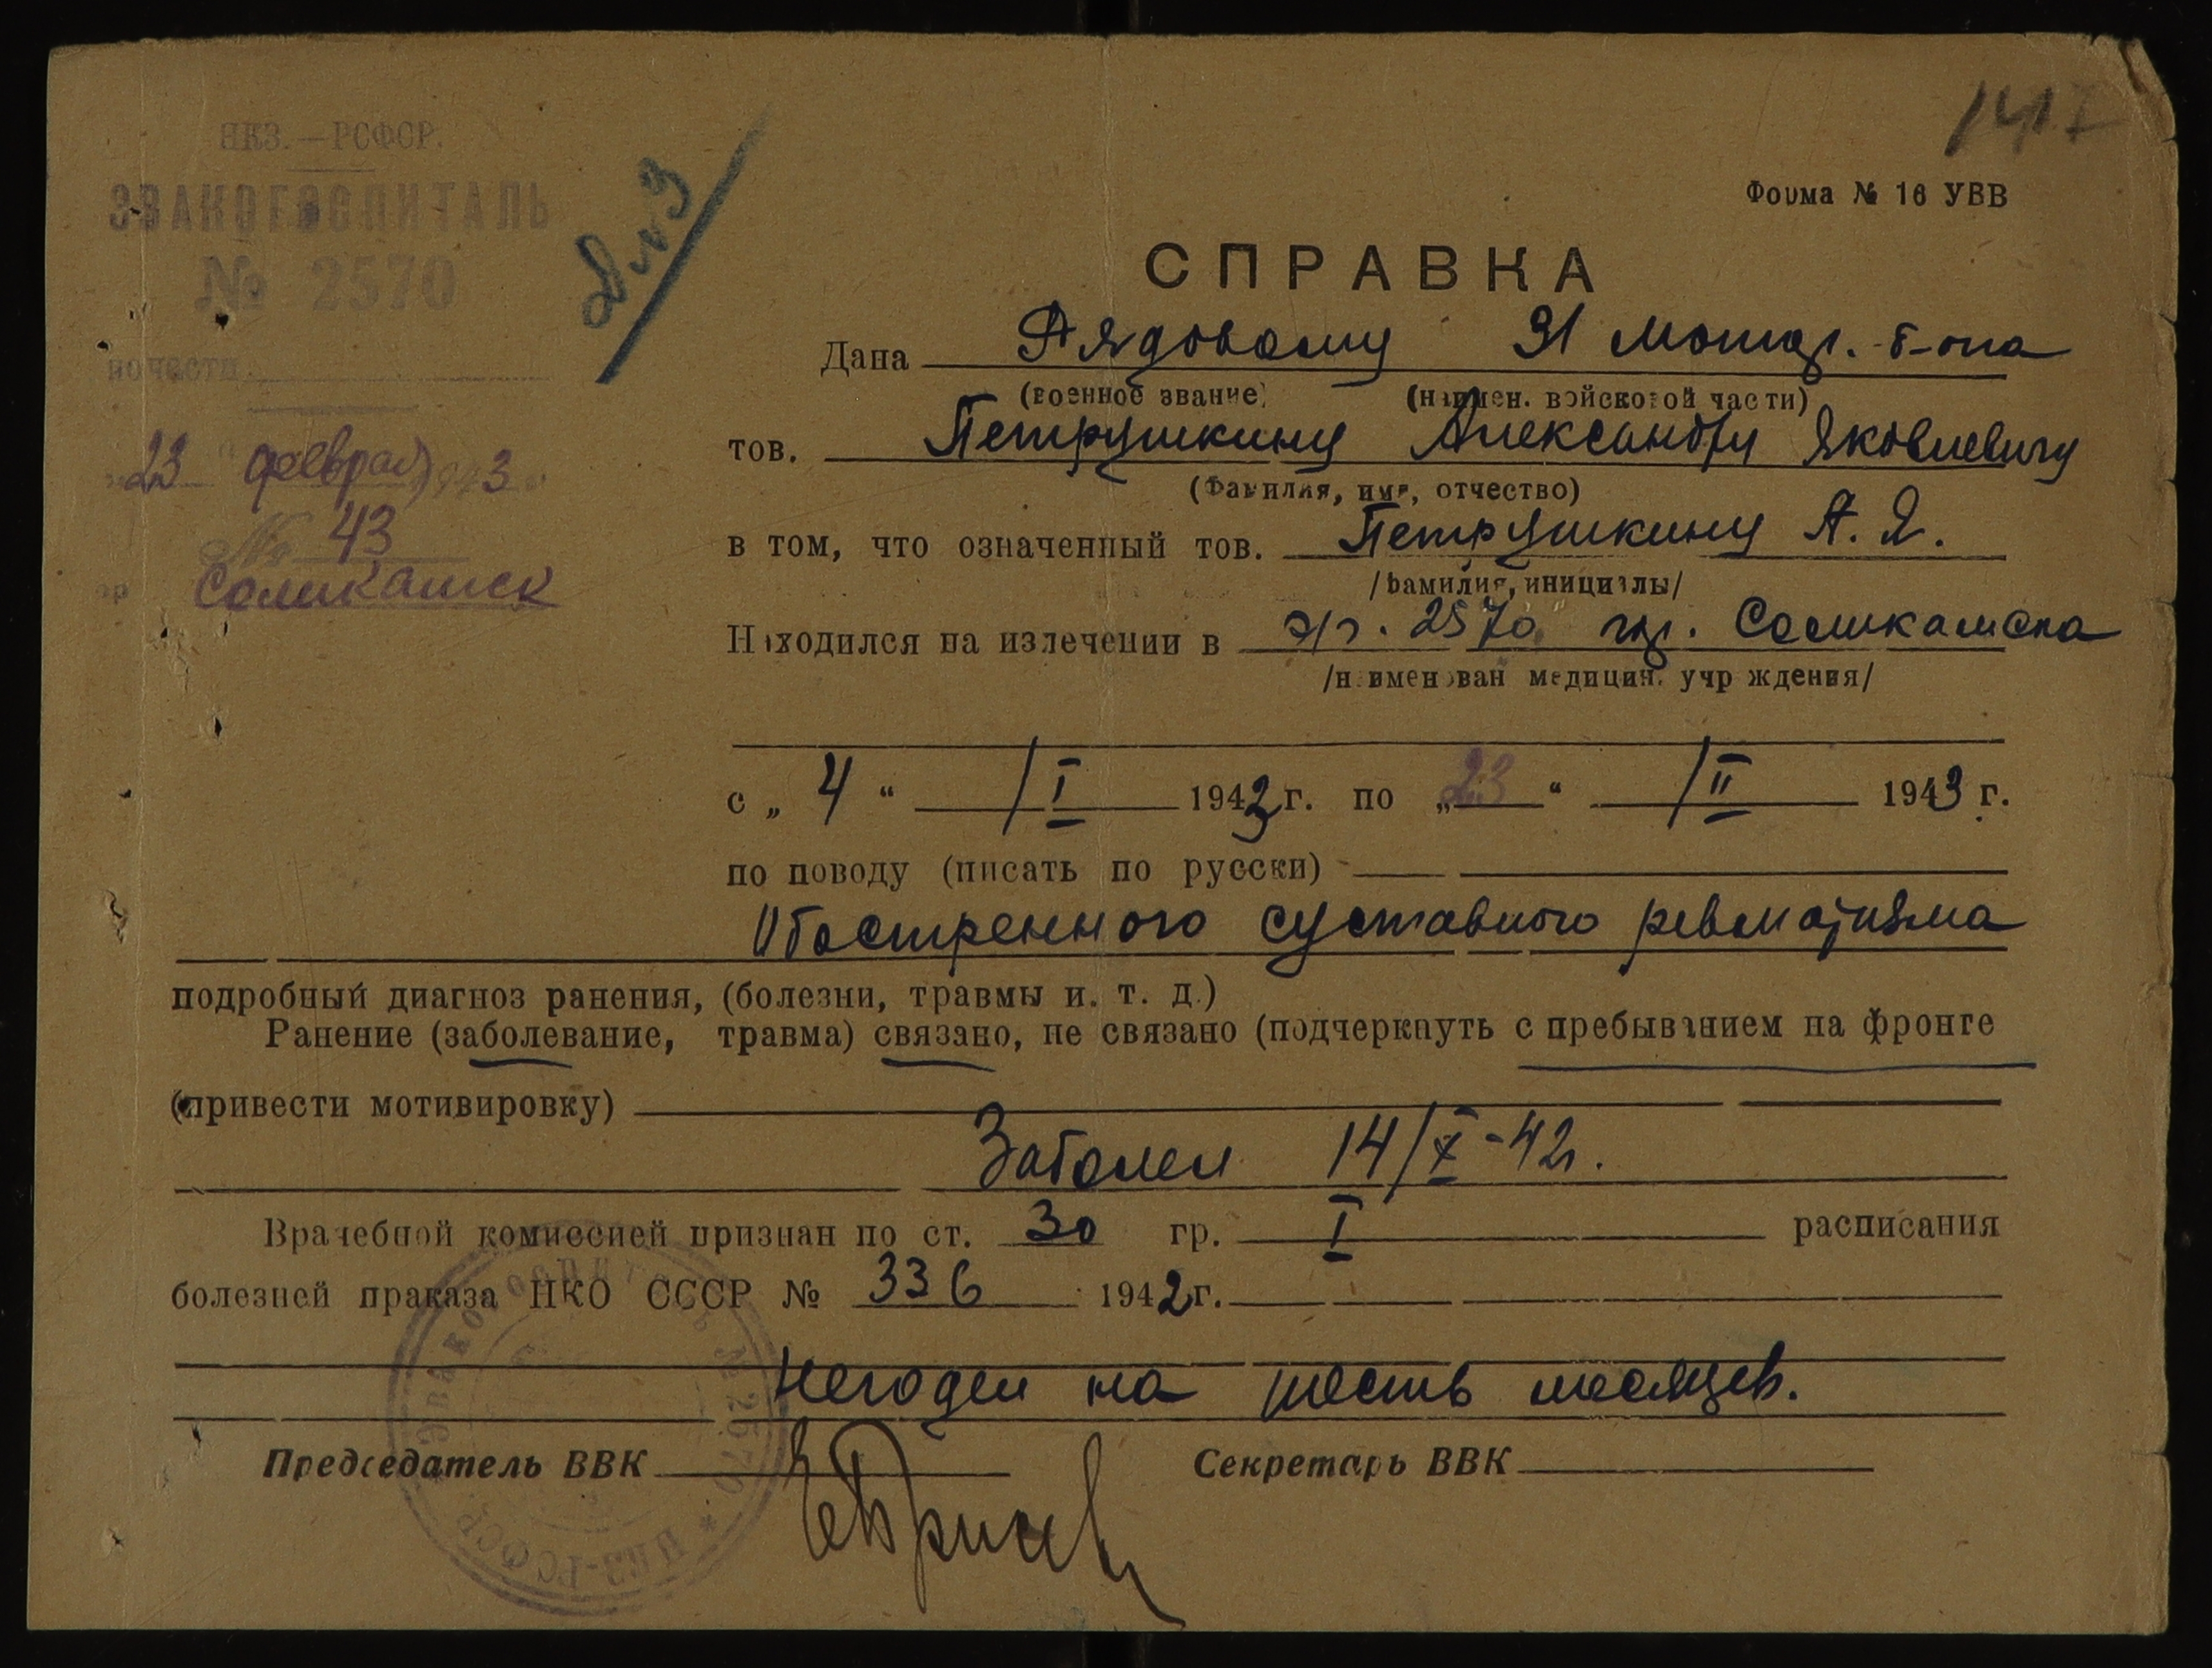 НКЗ.—РСФСР.
ЭВАКОГОСПИТАЛЬ
№ 2570
23 " февраля 1943 г.
№ 43
гор Соликамск
Форма № 16 УВВ
СПРАВКА
Дана Рядовому 31 мотор. б-она
(военное звание) (наимен. войсковой части)
тов. Петрушкину Александру Яковлевичу
(Фамилия, имя, отчество)
в том, что означенный тов. Петрушкину А. Я.
/фамилия, инициалы/
Находился на излечении в э/г. 2570 гор. Соликамска
/наименован медицин. учреждения/
с „ 4 “ /I 1943 г. по „ 23 “ /II 1943 г.
по поводу (писать по русски)
Обостренного суставного ревматизма
подробный диагноз ранения, (болезни, травмы и. т. д.)
Ранение (заболевание, травма) связано, не связано (подчеркнуть с пребыванием на фронте
(привести мотивировку)
Заболел 14/X-42г.
Врачебной комиссией признан по ст. 30 гр. I расписания
болезней праказа НКО СССР № 336 1942 г.
Негоден на шесть месяцев.
Председатель ВВК Секретарь ВВК
Эвакогоспиталь № 2570 * НКЗ-РСФСР